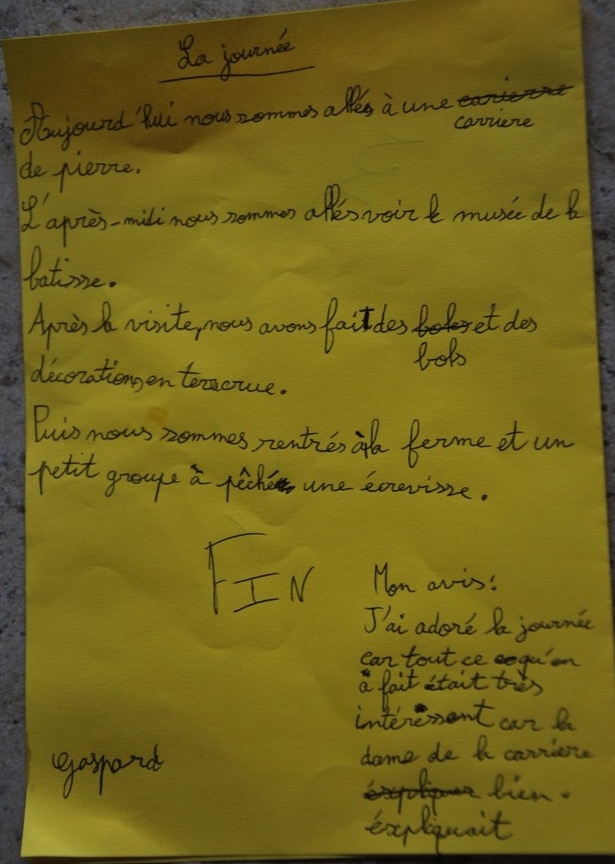 La journée
Aujourd'hui nous sommes allés à une carierre
carriere
de pierre.
L'après-midi nous sommes allés voir le musée de la
batisse.
Après la visite, nous avons fait des bols et des
bols
décorations, en terre crue.
Puis nous sommes rentrés à la ferme et un
petit groupe à pêché une écrevisse.
FIN
Mon avis:
J'ai adoré la journée
car tout ce qu'on
à fait était très
intéréssant car la
dame de la carriere
éxpliquer bien.
éxpliquait
Gaspard